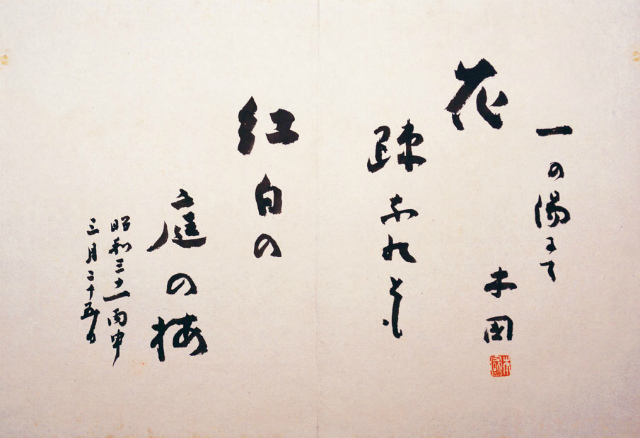 一の湯にて
木国
花
疎なれとも
紅白の
庭の梅
昭和三十一丙申
三月二十五日